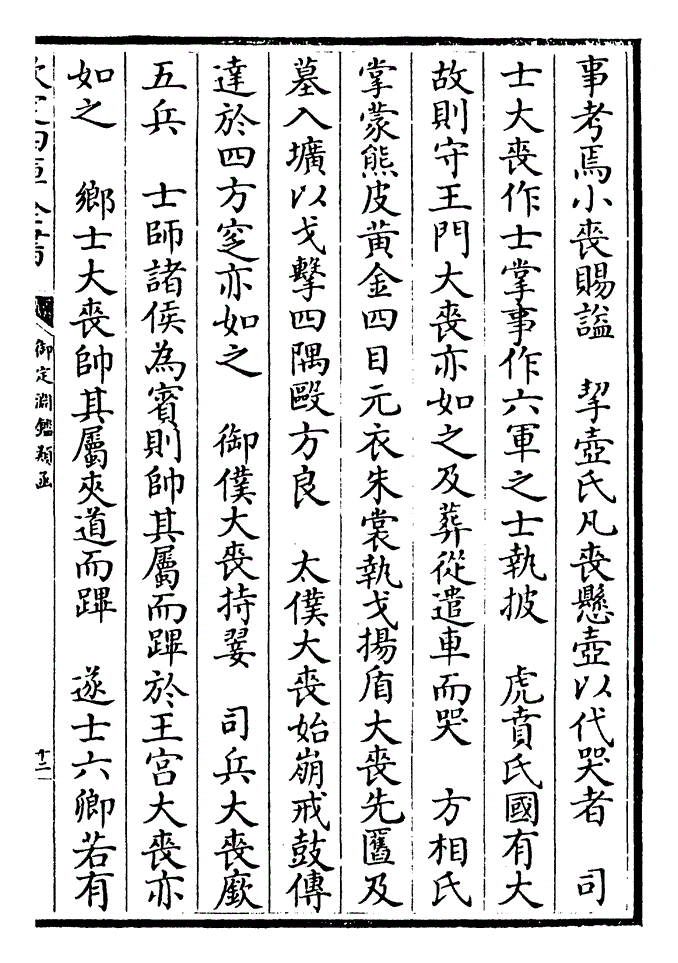 事考焉小喪賜謚　挈壺氏凡喪懸壺以代哭者　司
士大喪作士掌事作六軍之士執披　虎賁氏國有大
故則守王門大喪亦如之及葬從遣車而哭　方相氏
掌蒙熊皮黃金四目元衣朱裳執戈揚盾大喪先匶及
墓入壙以戈擊四隅毆方良　太僕大喪始崩戒鼓傳
達於四方窆亦如之　御僕大喪持翣　司兵大喪廞
五兵　士師諸侯為賓則帥其屬而蹕於王宫大喪亦
如之　鄉士大喪帥其屬夾道而蹕　遂士六卿若有
御定淵鑑類函
十二